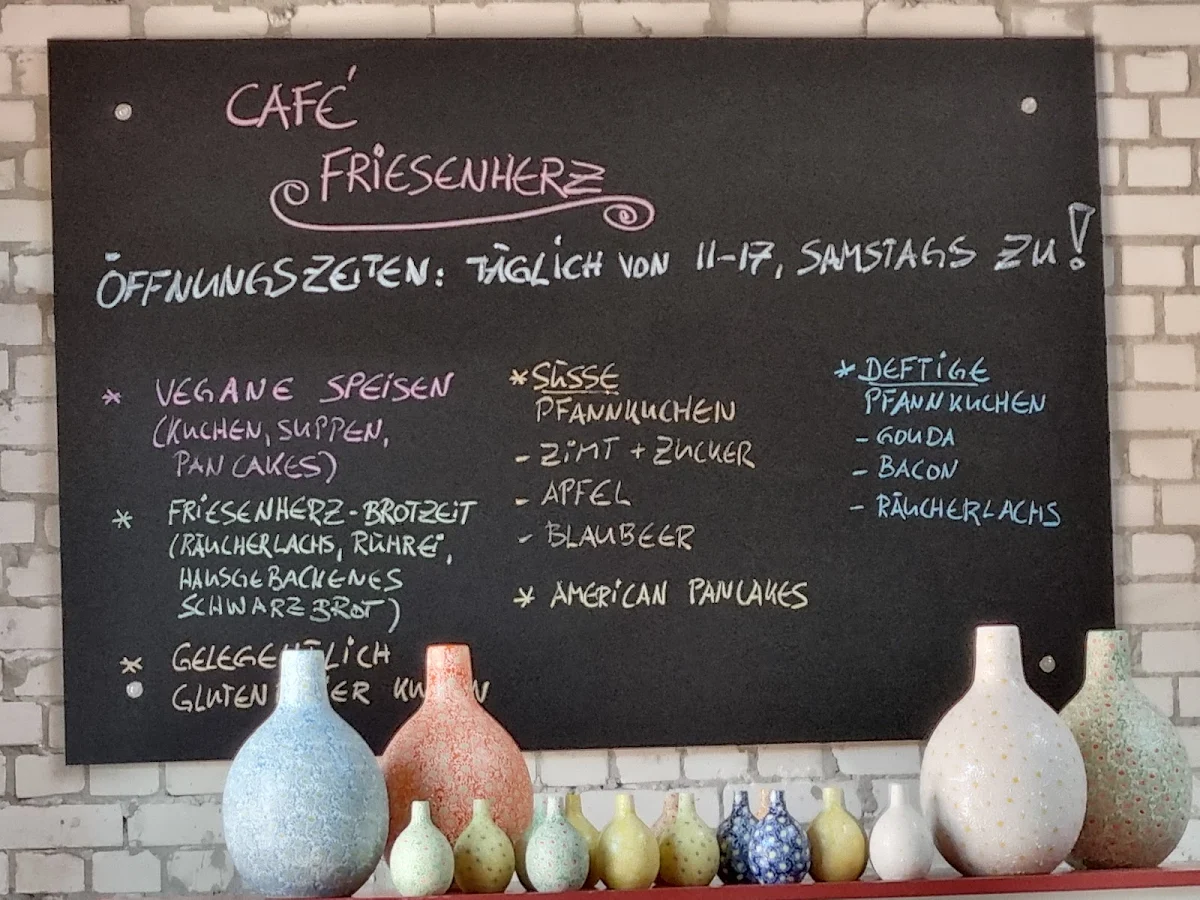 CAFÉ
FRIESENHERZ
ÖFFNUNGSZEITEN: TÄGLICH VON 11-17, SAMSTAGS ZU!
* VEGANE SPEISEN
(KUCHEN, SUPPEN,
PANCAKES)
* FRIESENHERZ-BROTZEIT
(RÄUCHERLACHS, RÜHREI,
HAUSGEBACKENES
SCHWARZBROT)
* GELEGENTLICH
GLUTEN
* SÜSSE
PFANNKUCHEN
- ZIMT + ZUCKER
- APFEL
- BLAUBEER
* AMERICAN PANCAKES
* DEFTIGE
PFANNKUCHEN
- GOUDA
- BACON
- RÄUCHERLACHS